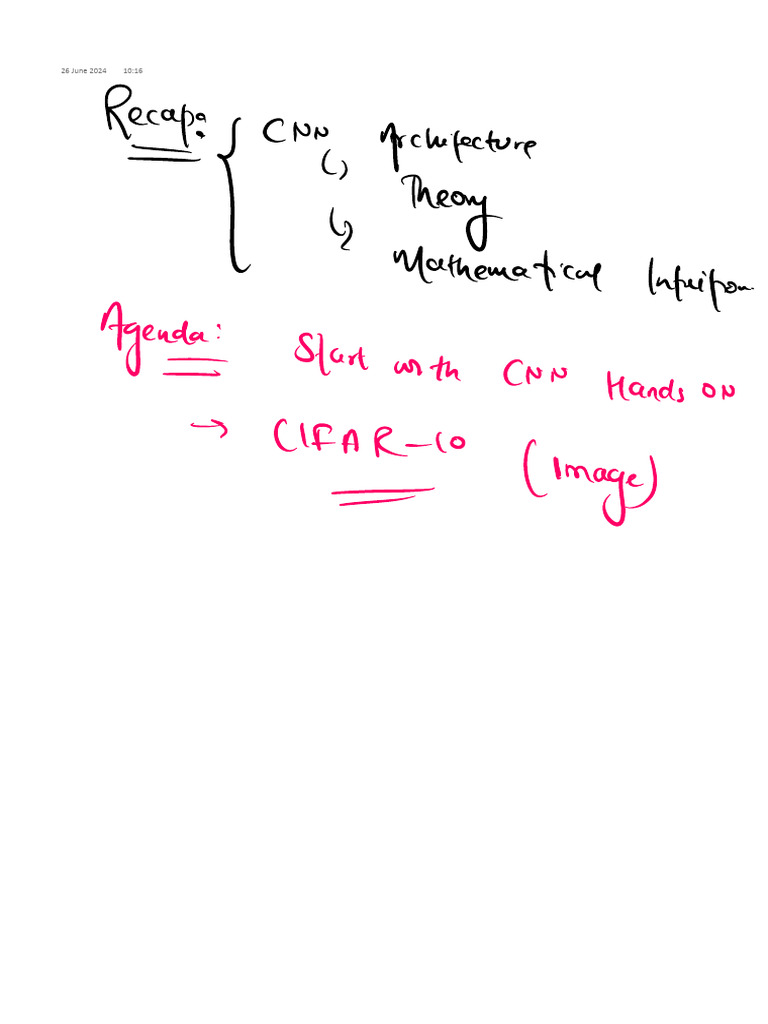 26 June 2024 10:16
Recap:
CNN Architecture
Theory
Mathematical Intuition
Agenda: Start with CNN Hands ON
→ CIFAR-10 (Image)